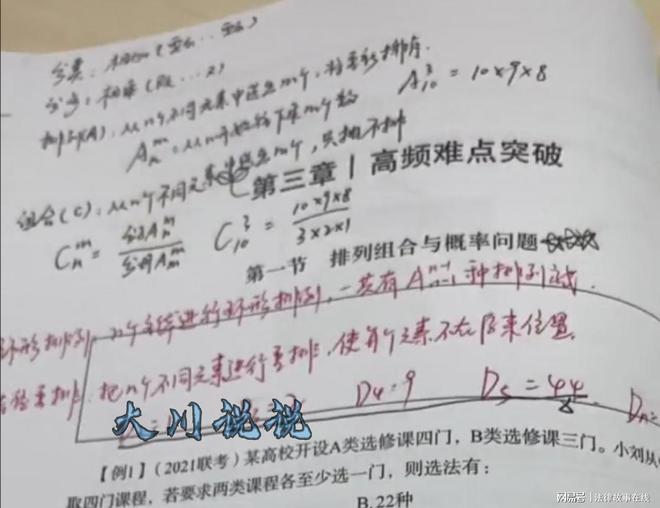 分类：相加（要么…要么）
分步：相乘（既…又）
排列(A)：从n个不同元素中选出m个，将要排序. A₁₀³ = 10×9×8
Aₙᵐ = 从n开始往下乘m个数
组合(C)：从n个不同元素中选出m个，只挑不排
第三章 | 高频难点突破
Cₙᵐ = Aₙᵐ / Aₘᵐ C₁₀³ = 10×9×8 / 3×2×1
第一节 排列组合与概率问题
环形排列：n个元素进行环形排列，一共有Aₙ₋₁ⁿ⁻¹种排列方式.
错位重排：把n个不同元素进行重排，使每个元素不在原来位置.
D₄=9 D₅=44
大川说说
【例1】（2021联考）某高校开设A类选修课四门，B类选修课三门。小刘从
取四门课程，若要求两类课程各至少选一门，则选法有：
B.22种
搜狐号|法律故事在线